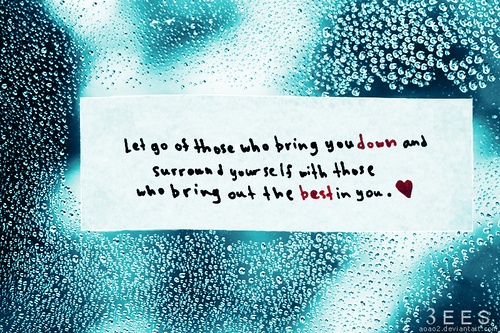 Let go of those who bring you down and
surround yourself with those
who bring out the best in you.
3EES
aoao2.deviantart.com